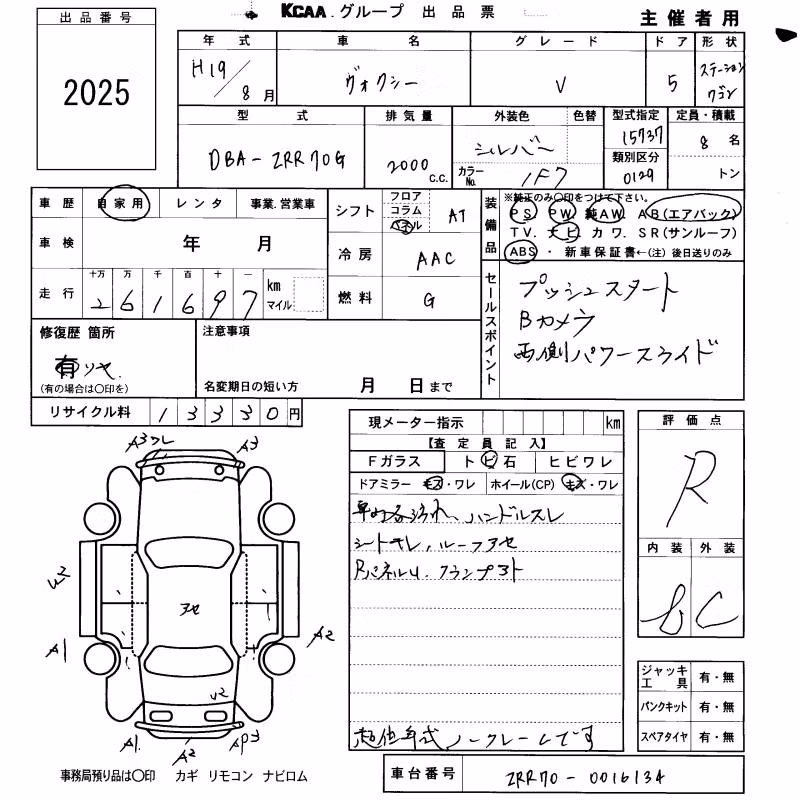 KCAA.グループ 出品票
主催者用
出品番号
2025
年式 車名 グレード ドア 形状
H19/8月 ヴォクシー V 5 ステーションワゴン
型式 排気量 外装色 色替 型式指定 定員・積載
DBA-ZRR70G 2000 c.c. シルバー 15737 8名
カラーNo. 1F7 類別区分 0129 トン
車歴 自家用 レンタ 事業.営業車
シフト フロア コラム パネル AT
装備品 ※純正のみ〇印をつけて下さい。
PS PW 純AW. AB(エアバッグ)
TV. ナビ カワ. SR(サンルーフ)
ABS・新車保証書←(注)後日送りのみ
車検 年 月
冷房 AAC
走行 十万 万 千 百 十 一
261697 km マイル
燃料 G
セールスポイント
プッシュスタート
Bカメラ
両側パワースライド
修復歴 箇所 注意事項
有 リヤ.
(有の場合は〇印を) 名変期日の短い方 月 日まで
リサイクル料 13330円
現メーター指示 km
【査定員記入】
Fガラス トビ石 ヒビワレ
ドアミラー キズ・ワレ ホイール(CP) キズ・ワレ
ハンドルスレ
シートキレ, ルーフアセ
RパネルU.
低年式ノークレームです
評価点
R
内装 外装
C
ジャッキ工具 有・無
パンクキット 有・無
スペアタイヤ 有・無
A3ワレ A3
U2
アセ
A1 A2
U2
A1 A2
事務局預り品は〇印 カギ リモコン ナビロム
車台番号 ZRR70-0016134